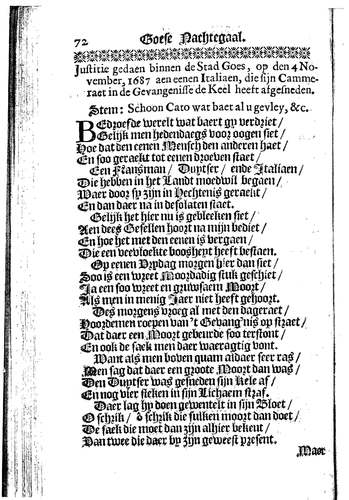 72 Goese Nachtegaal.
Justitie gedaen binnen de Stad Goes, op den 4 No-
vember, 1687 aen eenen Italiaen, die sijn Camme-
raet in de Gevangenisse de Keel heeft afgesneden.
Stem: Schoon Cato wat baet al u gevley, &c.
BEdroefde werelt wat baert gy verdriet/
Gelijk men hedendaegs voor oogen siet/
Hoe dat den eenen Mensch den anderen haet/
En soo geraekt tot eenen droeven staet/
Een Fransman/ Duytser/ ende Italiaen/
Die hebben in het Landt moedwil begaen/
Waer door sy zijn in Hechtenis geraekt/
En dan daer na in desolaten staet.
Gelijk het hier nu is gebleeken siet/
Aen dees Gesellen hoort na mijn bediet/
En hoe het met den eenen is vergaen/
Die een vervloekte boosheyt heeft bestaen.
Op eenen Vrydag morgen hier dan siet/
Soo is een wreet Moordadig stuk geschiet/
Ja een soo wreet en gruwsaem Moort/
Als men in menig Jaer niet heeft gehoort.
Des morgens vroeg al met den dageraet/
Hoordemen roepen van 't Gevang'nis op straet/
Dat daer een Moort gebeurde soo terstont/
En ook de saek men daer waeragtig vont.
Want als men boven quam aldaer seer ras/
Men sag dat daer een groote Moort dan was/
Den Duytser was gesneden sijn Kele af/
En nog vier steken in sijn Lichaem straf.
Daer lag hy doen gewentelt in sijn Bloet/
O schrik/ o schrik die sulken moort dan doet/
De saek die moet dan zijn alhier bekent/
Van twee die daer by zijn geweest present.
Maer